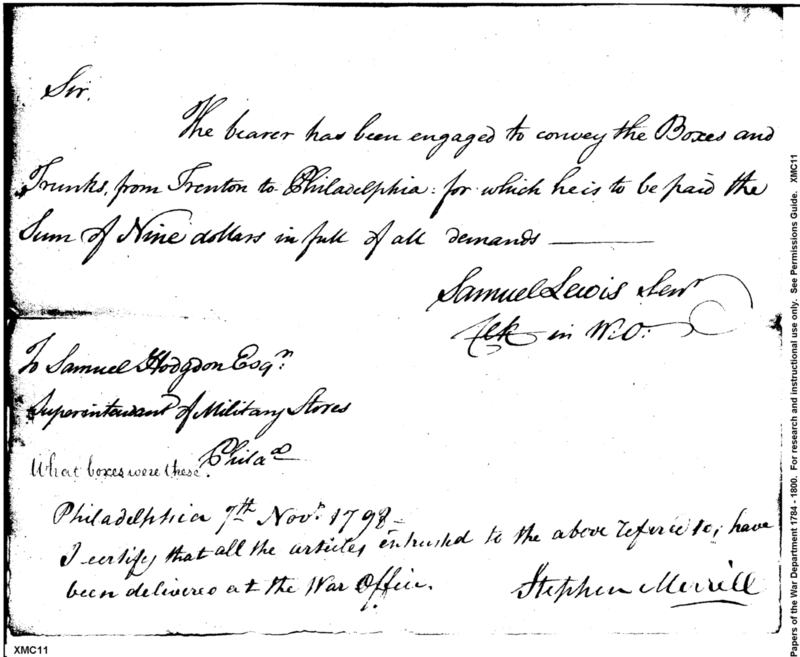 Sir,
The bearer has been engaged to convey the Boxes and
Trunks, from Trenton to Philadelphia: for which he is to be paid the
Sum of Nine dollars in full of all demands
Samuel Lewis Senr
Clk in W.O:
To Samuel Hodgdon Esqr:
Superintendant of Military Stores
Philaa
What boxes were these?
Philadelphia 7th Novr 1798-
I certify that all the articles intrusted to the above referr'd to; have
been delivered at the War Office.
Stephen Merrill
XMC11
Papers of the War Department 1784 - 1800. For research and instructional use only. See Permissions Guide. XMC11